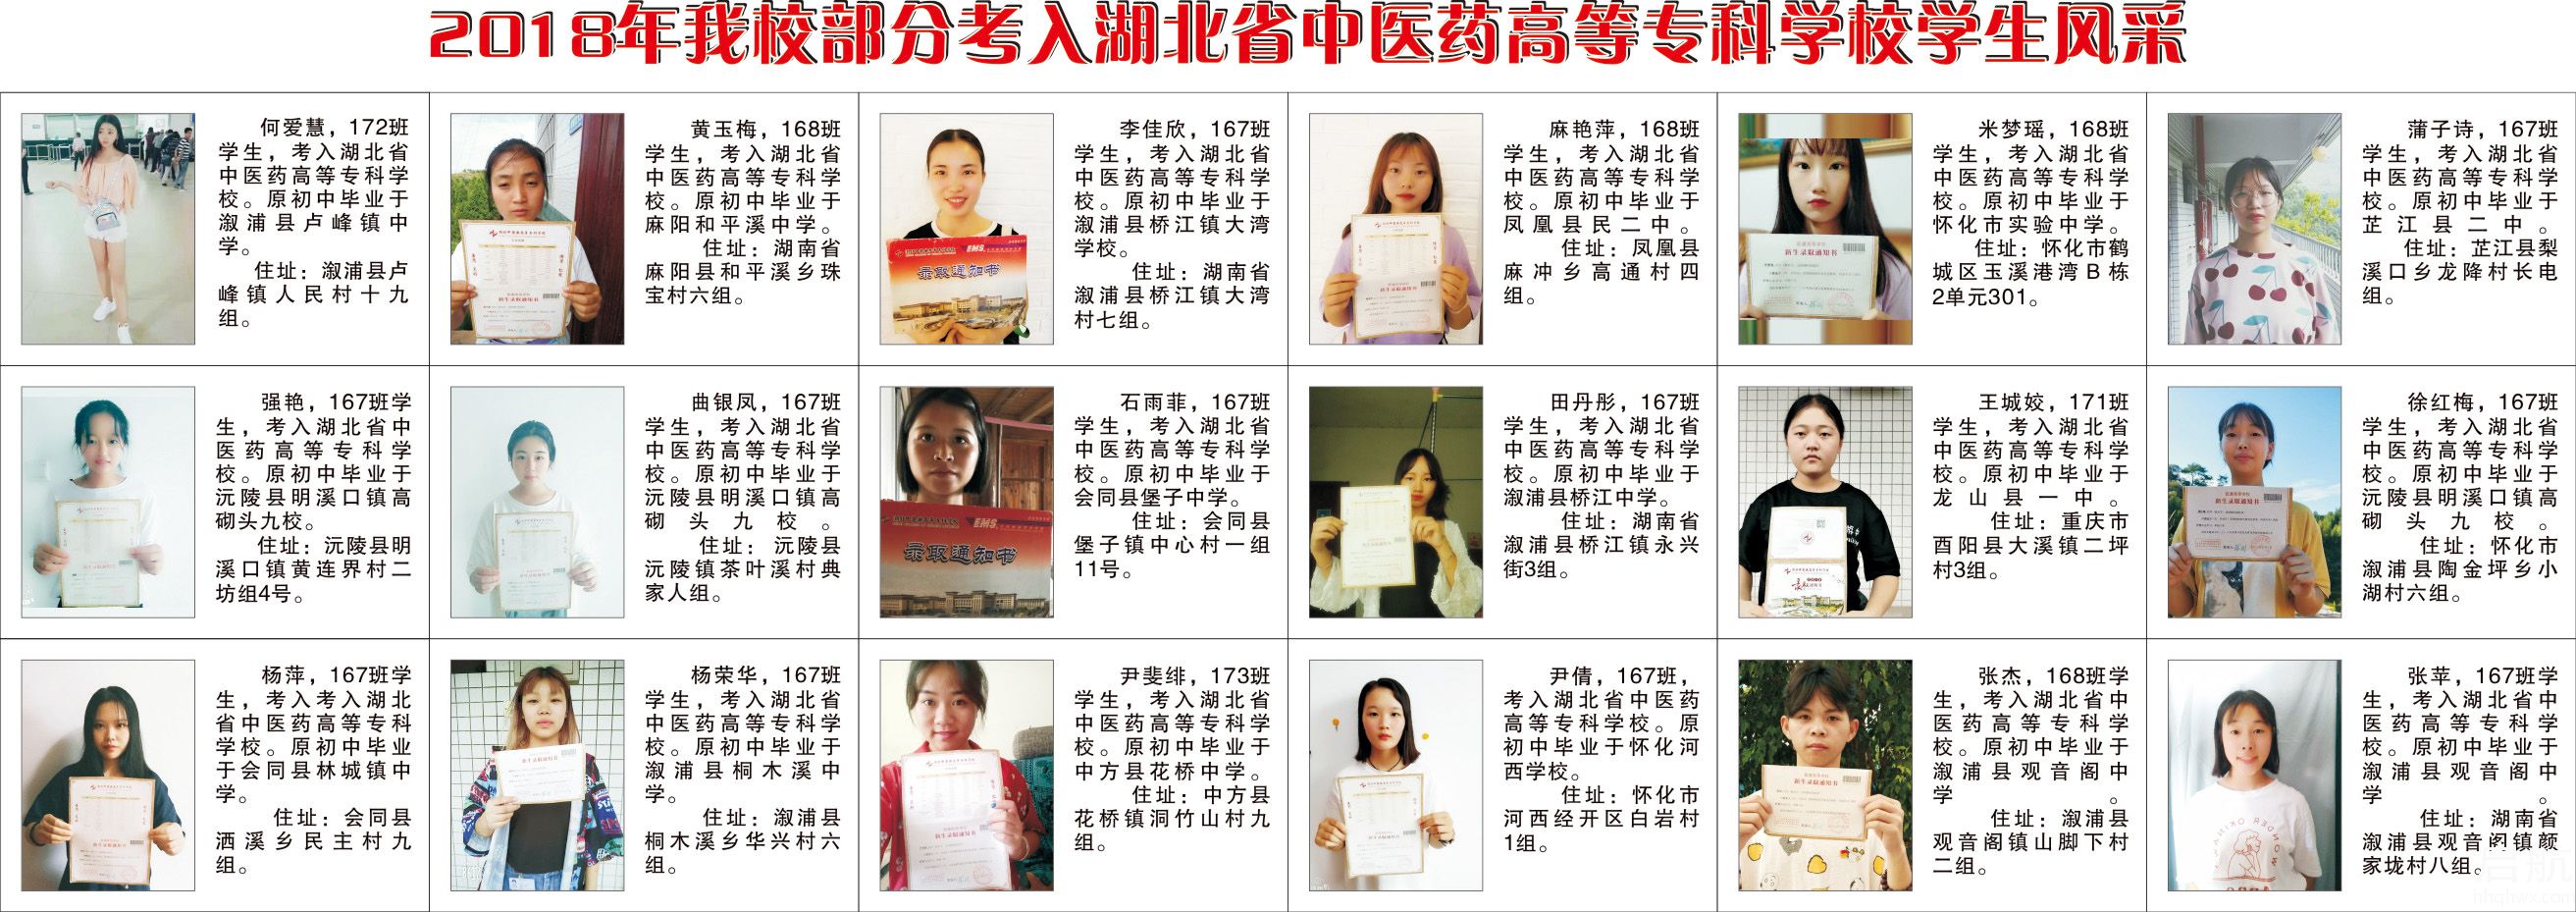 2018年我校部分考入湖北省中医药高等专科学校学生风采
何爱慧，172班
学生，考入湖北省
中医药高等专科学
校。原初中毕业于
溆浦县卢峰镇中
学。
住址：溆浦县卢
峰镇人民村十九
组。
黄玉梅，168班
学生，考入湖北省
中医药高等专科学
校。原初中毕业于
麻阳和平溪中学。
住址：湖南省
麻阳县和平溪乡珠
宝村六组。
李佳欣，167班
学生，考入湖北省
中医药高等专科学
校。原初中毕业于
溆浦县桥江镇大湾
学校。
住址：湖南省
溆浦县桥江镇大湾
村七组。
EMS
录取通知书
麻艳萍，168班
学生，考入湖北省
中医药高等专科学
校。原初中毕业于
凤凰县民二中。
住址：凤凰县
麻冲乡高通村四
组。
新生录取通知书
米梦瑶，168班
学生，考入湖北省
中医药高等专科学
校。原初中毕业于
怀化市实验中学。
住址：怀化市鹤
城区玉溪港湾B栋
2单元301。
新生录取通知书
蒲子诗，167班
学生，考入湖北省
中医药高等专科学
校。原初中毕业于
芷江县二中。
住址：芷江县梨
溪口乡龙降村长电
组。
强艳，167班学
生，考入湖北省中
医药高等专科学
校。原初中毕业于
沅陵县明溪口镇高
砌头九校。
住址：沅陵县明
溪口镇黄连界村二
坊组4号。
曲银凤，167班
学生，考入湖北省
中医药高等专科学
校。原初中毕业于
沅陵县明溪口镇高
砌头九校。
住址：沅陵县
沅陵镇茶叶溪村典
家人组。
石雨菲，167班
学生，考入湖北省
中医药高等专科学
校。原初中毕业于
会同县堡子中学。
住址：会同县
堡子镇中心村一组
11号。
EMS
录取通知书
田丹彤，167班
学生，考入湖北省
中医药高等专科学
校。原初中毕业于
溆浦县桥江中学。
住址：湖南省
溆浦县桥江镇永兴
街3组。
王城姣，171班
学生，考入湖北省
中医药高等专科学
校。原初中毕业于
龙山县一中。
住址：重庆市
酉阳县大溪镇二坪
村3组。
徐红梅，167班
学生，考入湖北省
中医药高等专科学
校。原初中毕业于
沅陵县明溪口镇高
砌头九校。
住址：怀化市
溆浦县陶金坪乡小
湖村六组。
新生录取通知书
杨萍，167班学
生，考入考入湖北
省中医药高等专科
学校。原初中毕业
于会同县林城镇中
学。
住址：会同县
洒溪乡民主村九
组。
杨荣华，167班
学生，考入湖北省
中医药高等专科学
校。原初中毕业于
溆浦县桐木溪中
学。
住址：溆浦县
桐木溪乡华兴村六
组。
新生录取通知书
尹斐绯，173班
学生，考入湖北省
中医药高等专科学
校。原初中毕业于
中方县花桥中学。
住址：中方县
花桥镇洞竹山村九
组。
尹倩，167班，
考入湖北省中医药
高等专科学校。原
初中毕业于怀化河
西学校。
住址：怀化市
河西经开区白岩村
1组。
张杰，168班学
生，考入湖北省中
医药高等专科学
校。原初中毕业于
溆浦县观音阁中
学。
住址：溆浦县
观音阁镇山脚下村
二组。
新生录取通知书
张苹，167班学
生，考入湖北省中
医药高等专科学
校。原初中毕业于
溆浦县观音阁中
学。
住址：湖南省
溆浦县观音阁镇颜
家垅村八组。